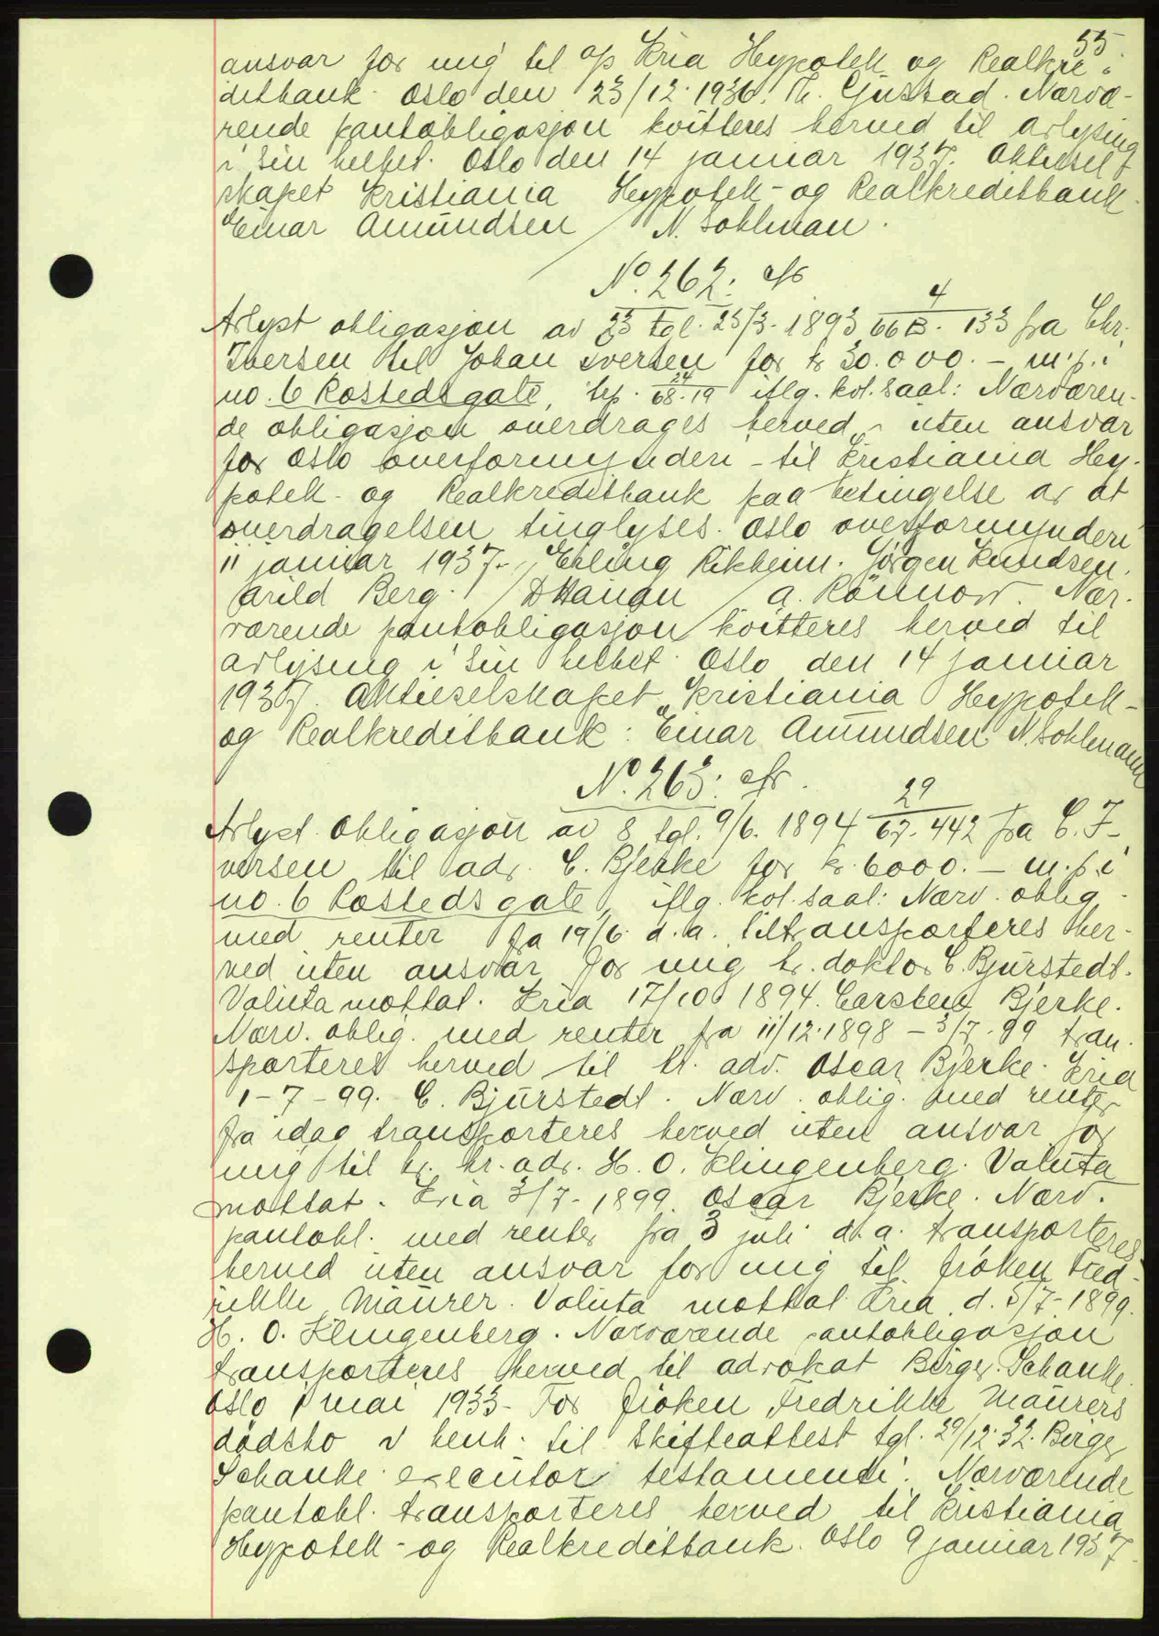 55.
ansvar for mig til a/s Kria Hypotek og Realkre-
ditbank. Oslo den 23/12.1936. Th. Gjustad. Nærvæ-
rende pantobligasjon kvitteres herved til avlysing
i sin helhet. Oslo den 14 januar 1937. Aktiesel-
skapet Kristiania Hypotek- og Realkreditbank.
Einar Amundsen / N. Sohlman.
No. 262:
Avlyst obligasjon av 23 tgl. 25/3. 1893 4/66B. 133 fra Chr.
Iversen til Johan Iversen for kr 30.000.- m.p.i
no. 6 Rostedsgate, hp. 24/68.19 iflg. kvl. saal: Nærværen-
de obligasjon overdrages herved - uten ansvar
for Oslo overformynderi - til Kristiania Hy-
potek- og Realkreditbank paa betingelse av at
overdragelsen tinglyses. Oslo overformynderi
11 januar 1937. Erling Rikheim. Jørgen Knudsen.
Arild Berg. / / A. Rönnow. Nær-
værende pantobligasjon kvitteres herved til
avlysing i sin helhet. Oslo den 14 januar
1937. Aktieselskapet Kristiania Hypotek-
og Realkreditbank: Einar Amundsen N. Sohlmann
No. 263:
Avlyst obligasjon av 8 tgl. 9/6. 1894 29/67.442 fra C. I-
versen til adv. C. Bjerke for kr. 6000.- m.p.i
no. 6 Rostedsgate, iflg. kvl. saal: Nærv. oblig.
med renter fra 19/6 d.a. tiltransporteres her-
ved uten ansvar for mig hr. doktor C. Bjurstedt.
Valuta mottat. Kria 17/10 1894. Carsten Bjerke.
Nærv. oblig. med renter fra 11/12.1898 - 3/7.99 tran-
sporteres herved til hr. adv. Oscar Bjerke. Kria
1-7-99. C. Bjurstedt. Nærv. oblig. med renter
fra idag transporteres herved uten ansvar for
mig til hr. hr. adv. H. O. Klingenberg. Valuta
mottat. Kria 3/7. 1899. Oscar Bjerke. Nærv.
pantobl. med renter fra 3 juli d.a. transporteres
herved uten ansvar for mig til frøken Fred-
rikke Maurer. Valuta mottat Kria d. 5/7. 1899.
H. O. Klingenberg. Nærværende pantobligasjon
transporteres herved til advokat Birger Schanke.
Oslo 1 mai 1933. For frøken Fredrikke Maurers
dødsbo v henh. til skifteattest tgl. 29/12.32. Birger
Schanke executor testamenti. Nærværende
pantobl. transporteres herved til Kristiania
Hypotek- og Realkreditbank. Oslo 9 januar 1937.